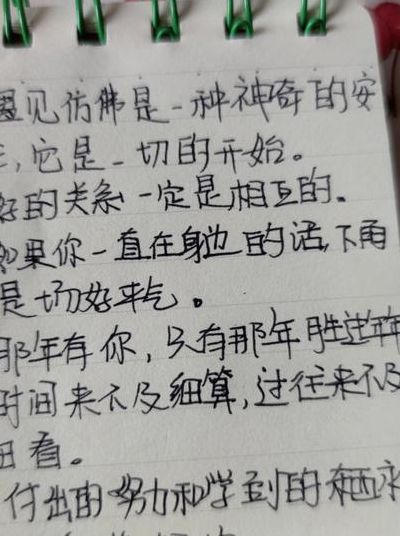 遇见仿佛是一种神奇的安
,它是一切的开始。
好的关系一定是相互的。
如果你一直在身边的话,下雨
是场好天气。
那年有你,只有那年胜过年年
时间来不及细算,过往来不及
细看。
付出的努力和学到的东西永